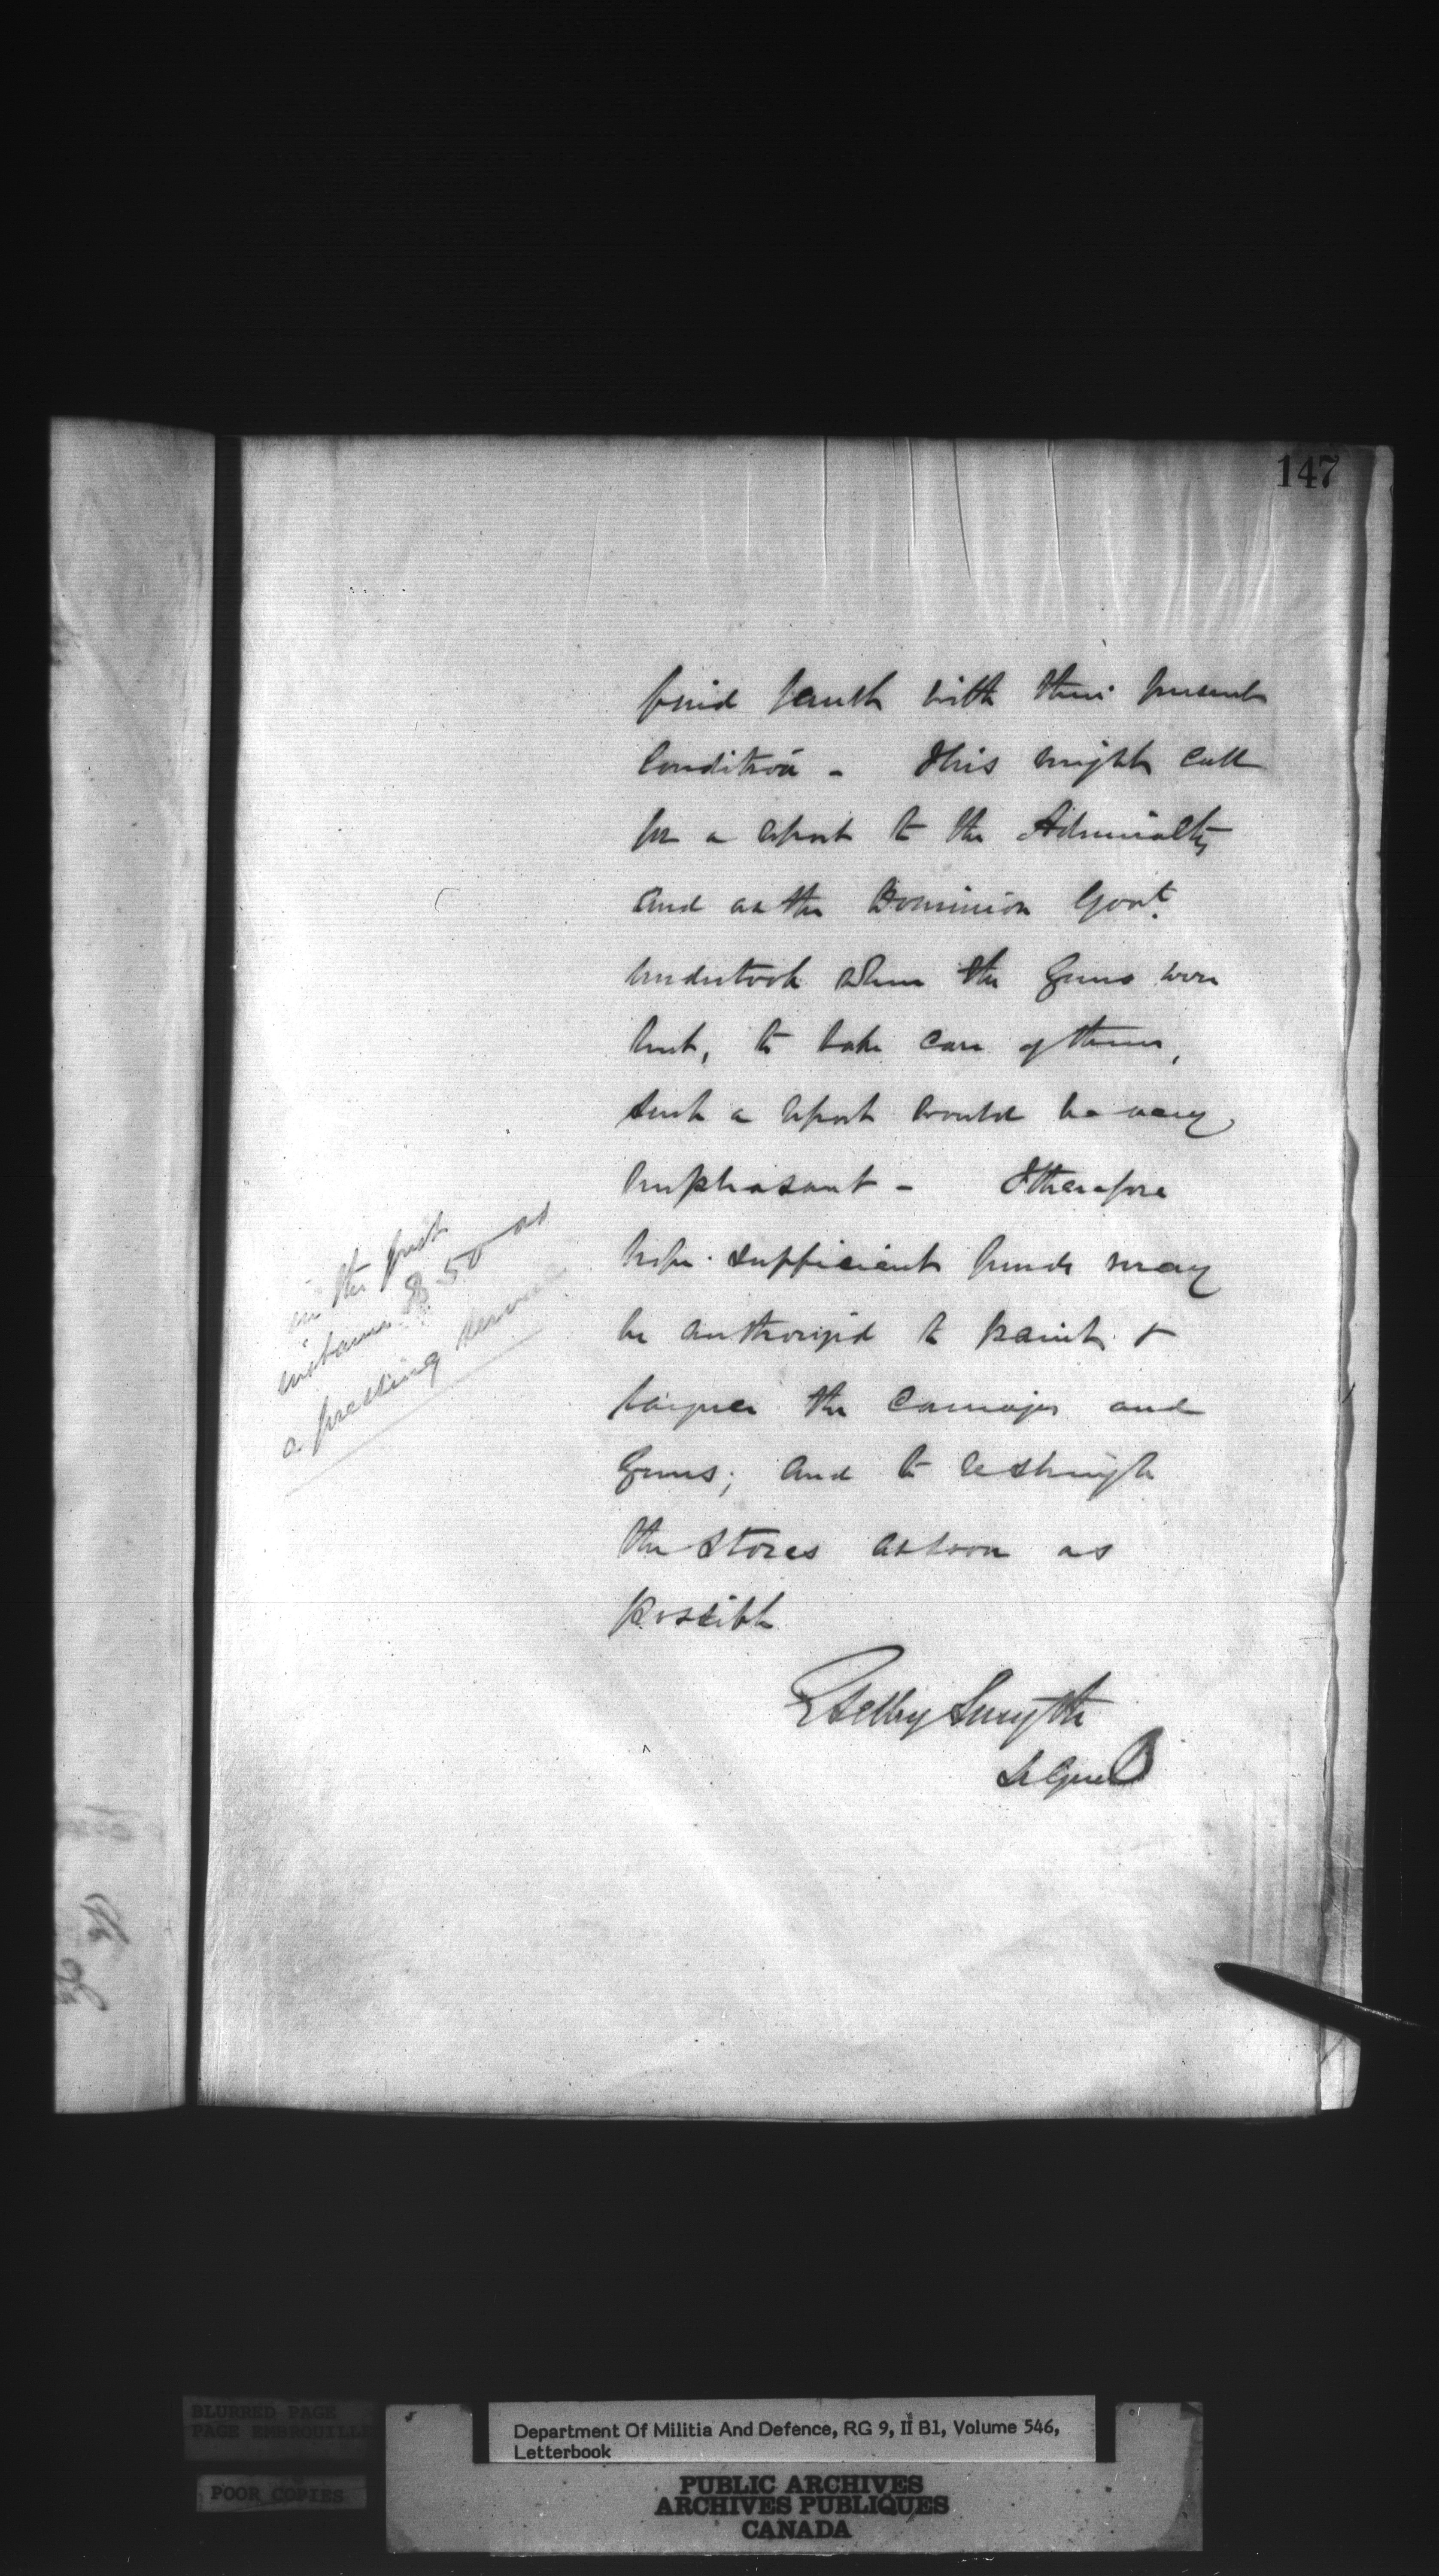 147
find fault with their present
Condition - This might call
for a report to the Admiralty
and as the Dominion Govt.
undertook when the Guns were
lent, to take care of them,
such a report would be very
unpleasant - I therefore
hope sufficient funds may
be authorized to paint &
lacquer the Carriages and
Guns; and to
the Stores as soon as
possible
ESelby Smyth
Lt Genl
in the first
instance $ 50 as
a pressing service
BLURRED PAGE
PAGE EMBROUILLE
POOR COPIES
Department Of Militia And Defence, RG 9, II B1, Volume 546,
Letterbook
PUBLIC ARCHIVES
ARCHIVES PUBLIQUES
CANADA